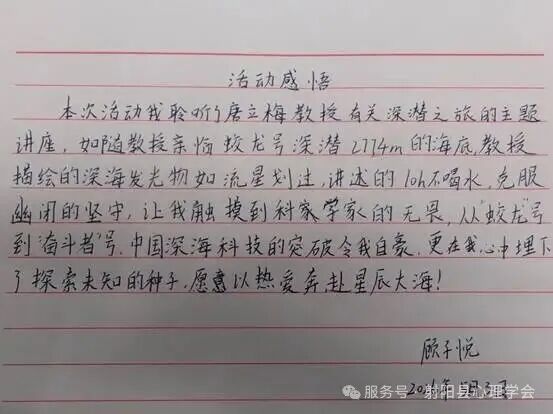 活动感悟
本次活动我聆听了唐立梅教授有关深潜之旅的主题
讲座,如随教授亲临蛟龙号深潜2774m的海底,教授
描绘的深海发光物如流星划过,讲述的10h不喝水,克服
幽闭的坚守,让我触摸到科家学家的无畏,从“蛟龙”号
到“奋斗者”号,中国深海科技的突破令我自豪,更在我心中埋下
了探索未知的种子,愿意以热爱奔赴星辰大海!
顾子悦
服务号 · 射阳县心理学会